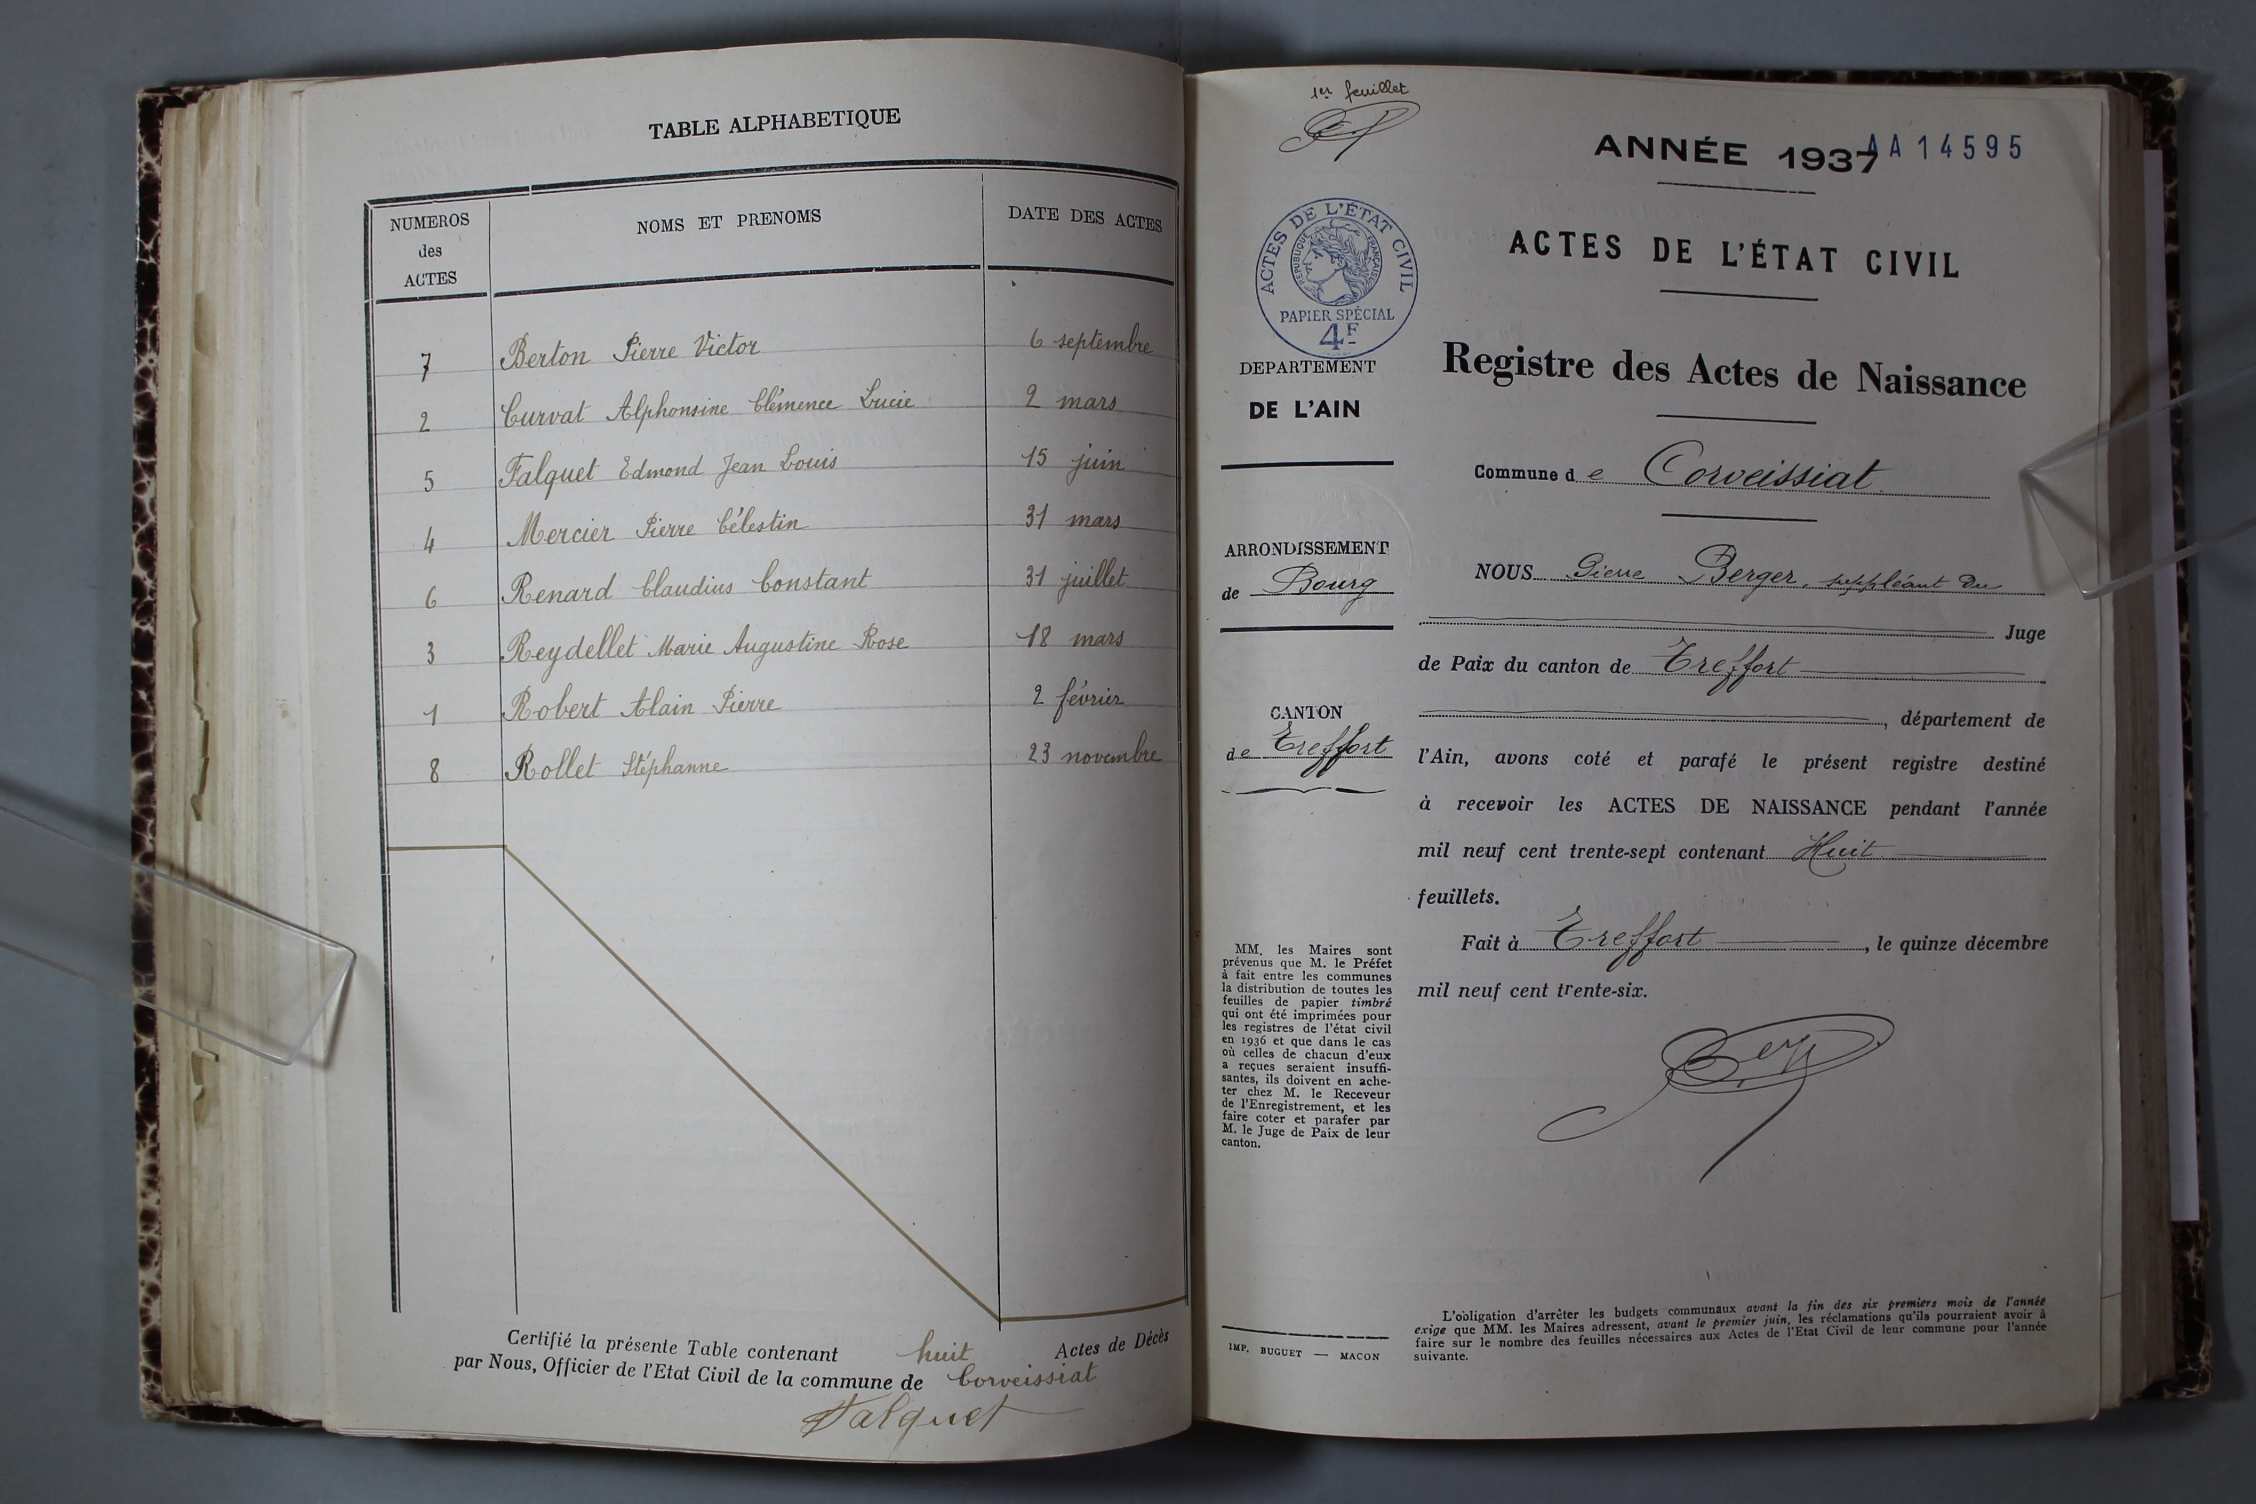 TABLE ALPHABETIQUE
NUMEROS des ACTES NOMS ET PRENOMS DATE DES ACTES
7 Berton Pierre Victor 6 septembre
2 Curvat Alphonsine Clémence Lucie 2 mars
5 Falquet Edmond Jean Louis 15 juin
4 Mercier Pierre Célestin 31 mars
6 Renard Claudius Constant 31 juillet
3 Reydellet Marie Augustine Rose 18 mars
1 Robert Alain Pierre 2 février
8 Rollet Stéphanne 23 novembre
Certifié la présente Table contenant huit Actes de Décès
par Nous, Officier de l'Etat Civil de la commune de Corveissiat
Falquet
1er feuillet
ANNÉE 1937
AA14595
ACTES DE L'ÉTAT CIVIL
RÉPUBLIQUE FRANÇAISE
PAPIER SPÉCIAL
4F
DEPARTEMENT
DE L'AIN
ARRONDISSEMENT
de Bourg
CANTON
de Treffort
MM. les Maires sont
prévenus que M. le Préfet
à fait entre les communes
la distribution de toutes les
feuilles de papier timbré
qui ont été imprimées pour
les registres de l'état civil
en 1936 et que dans le cas
où celles de chacun d'eux
a reçues seraient insuffi-
santes, ils doivent en ache-
ter chez M. le Receveur
de l'Enregistrement, et les
faire coter et parafer par
M. le Juge de Paix de leur
canton.
IMP. BUGUET — MACON
ACTES DE L'ÉTAT CIVIL
Registre des Actes de Naissance
Commune de Corveissiat
NOUS Pierre Berger, suppléant du
Juge
de Paix du canton de Treffort
, département de
l'Ain, avons coté et parafé le présent registre destiné
à recevoir les ACTES DE NAISSANCE pendant l'année
mil neuf cent trente-sept contenant Huit
feuillets.
Fait à Treffort, le quinze décembre
mil neuf cent trente-six.
L'obligation d'arrêter les budgets communaux avant la fin des six premiers mois de l'année
exige que MM. les Maires adressent, avant le premier juin, les réclamations qu'ils pourraient avoir à
faire sur le nombre des feuilles nécessaires aux Actes de l'Etat Civil de leur commune pour l'année
suivante.